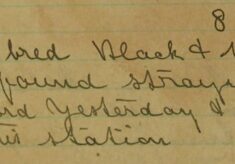 8
bred Black &
found straye
Yesterday &
station